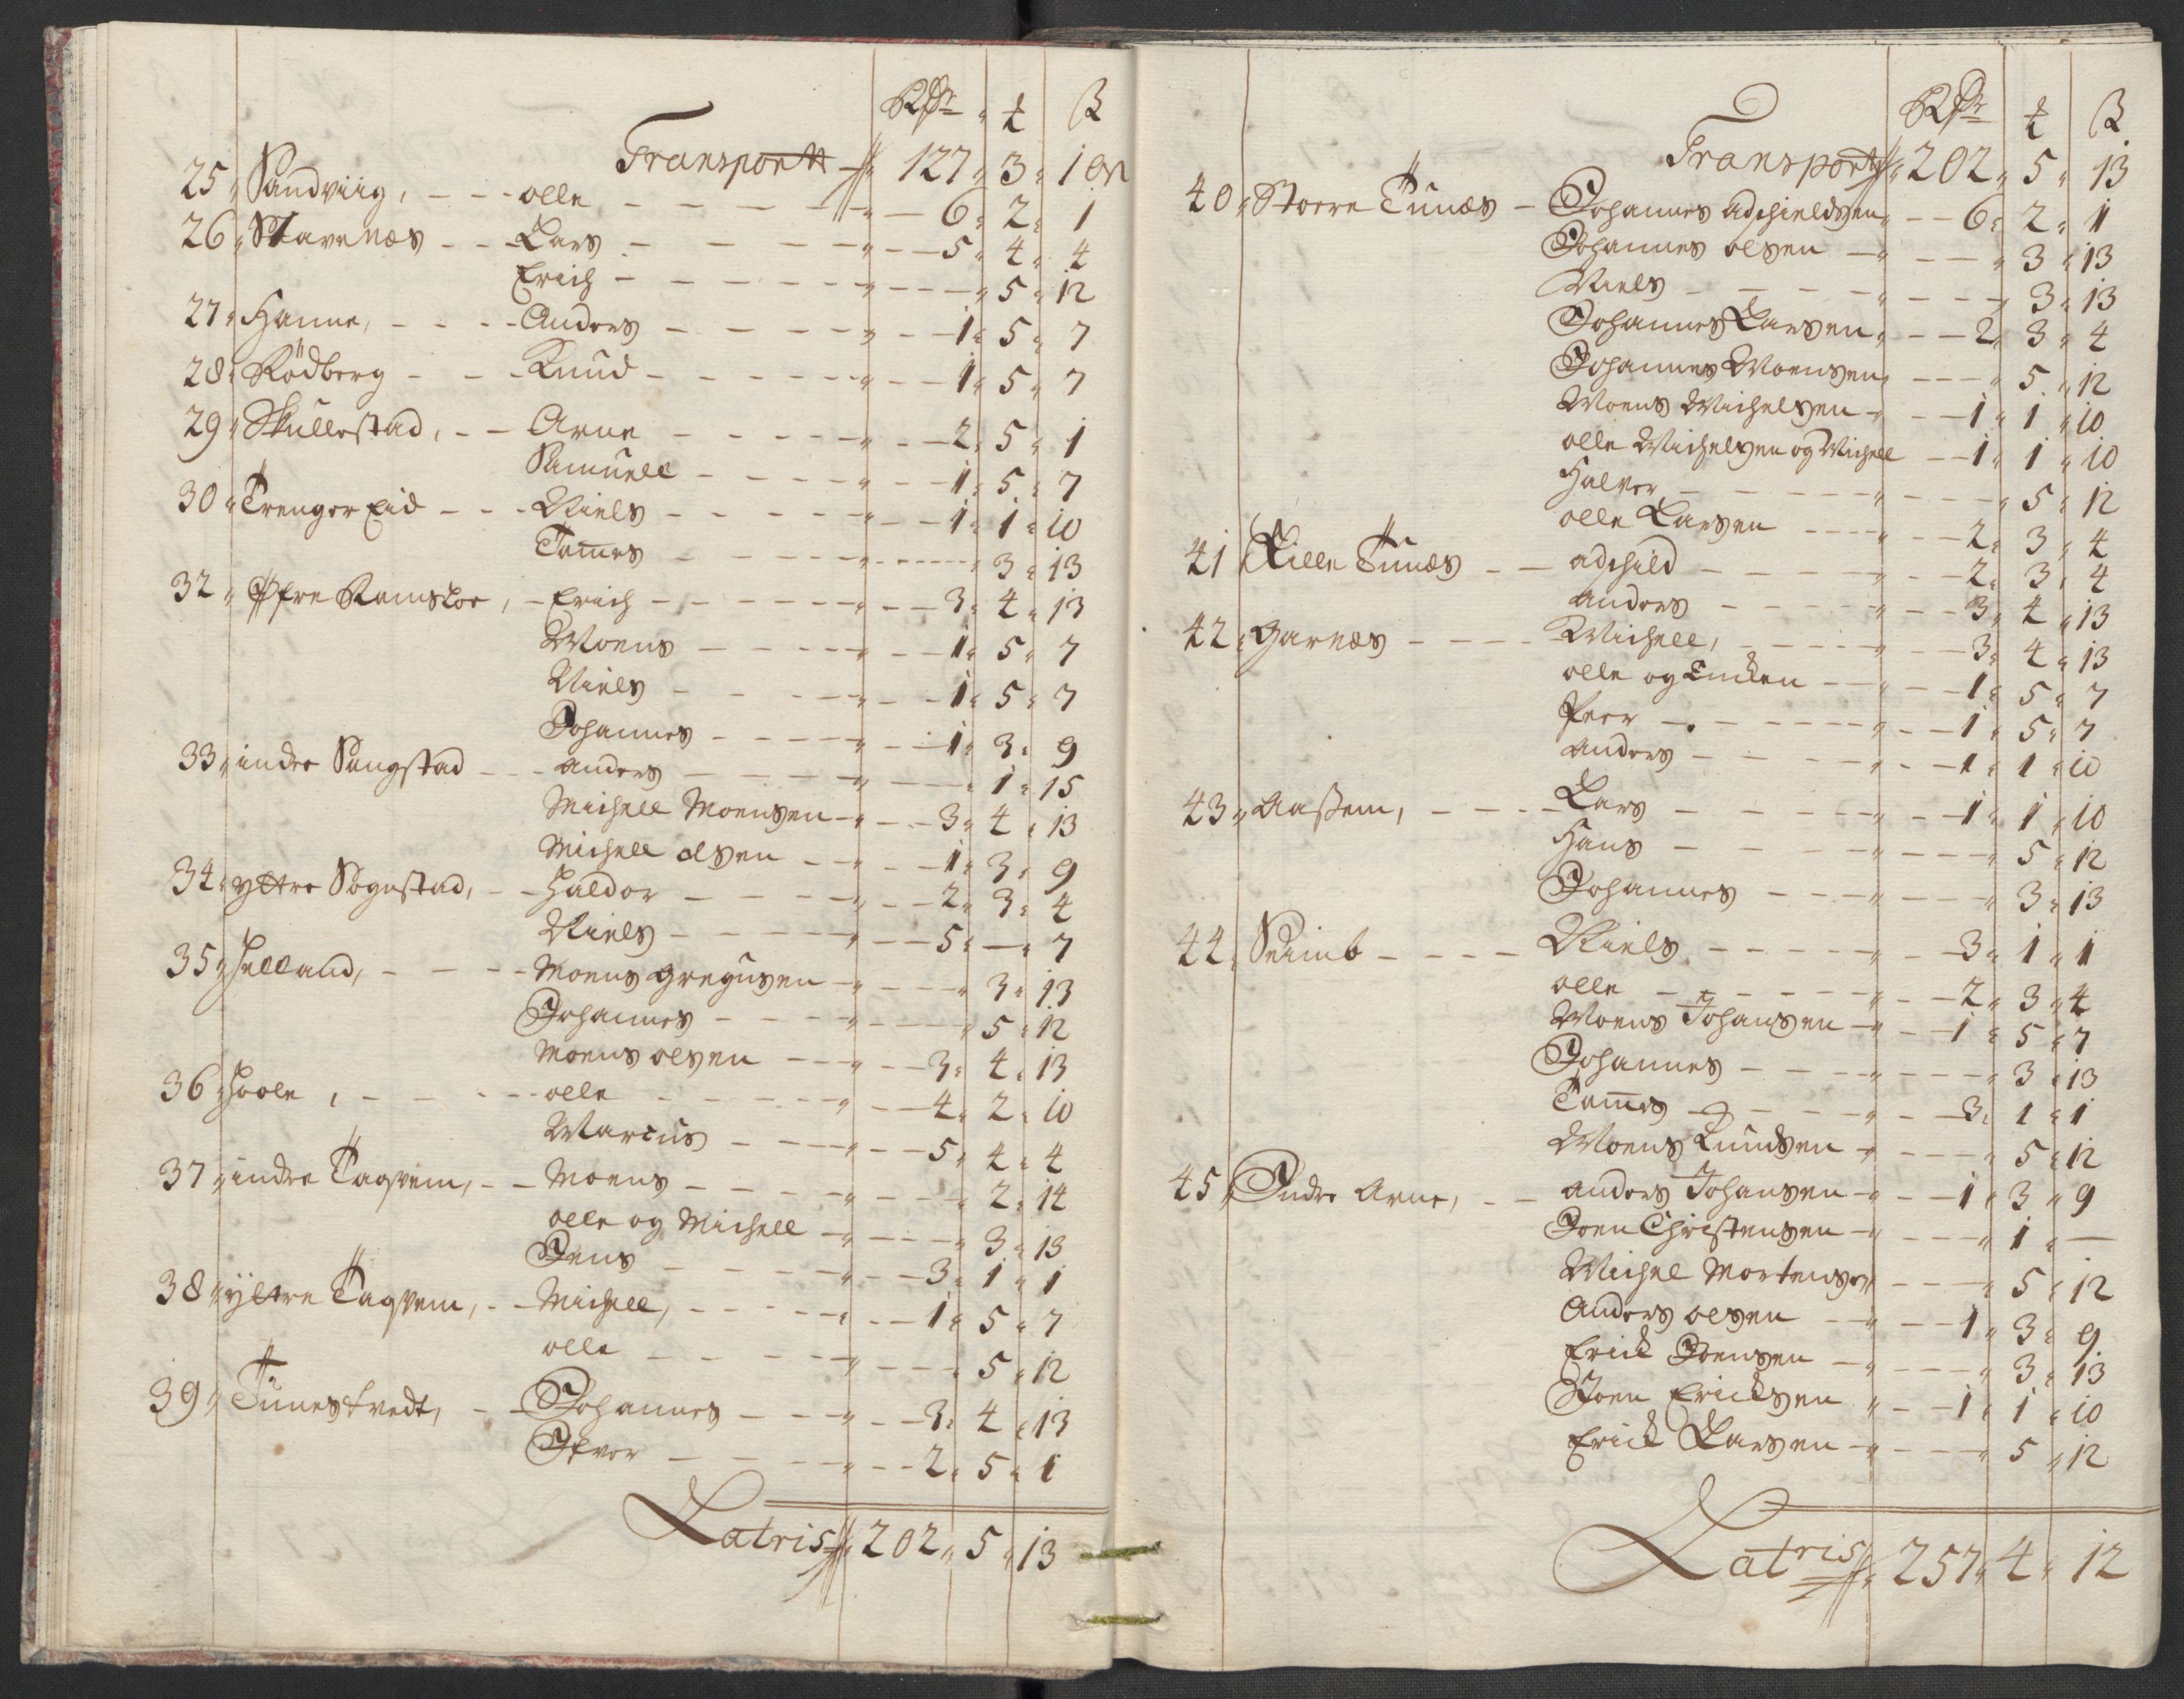 Rdr t ß
Transportt 127 3 10
25 Sandviig, olle 6 2 1
26 Stavenes Lars 5 4 4
Erich 5 12
27 Hanne, Anders 1 5 7
28 Rödberg Knud 1 5 7
29 Skullestad, Arne 2 5 1
Samuell 1 5 7
30 Trenger Eid Niels 1 1 10
Tomes 3 13
32 Øfre Ramsloe, Erich 3 4 13
Moens 1 5 7
Niels 1 5 7
Johannes 1 3 9
33 indre Sangstad anders 1 15
Michell Moensen 3 4 13
Michell olsen 1 3 9
34 yttre Sognstad, Haldor 2 3 4
Niels 5 — 7
35 Helland, Moens Gregusen 3 13
Johannes 5 12
Moens olsen 3 4 13
36 Hoole, olle 4 2 10
Marcus 5 4 4
37 indre Taqvim, Moens 2 14
olle og Michell 3 13
Jens 3 1 1
38 yttre Taqvem, Michell, 1 5 7
olle 5 12
39 Tunestvedt, Johannes 3 4 13
Ifvor 2 5 1
Latris 202 5 13
Rdr t ß
Transport 202 5 13
40 Stoere Tunæs Johannes adschieldsen 6 2 1
Johannes olsen 3 13
Niels 3 13
Johannes Larsen 2 3 4
Johannes Moensen 5 12
Moens Michelsen 1 1 10
olle Michelsen og Michell 1 1 10
Halver 5 12
olle Larsen 2 3 4
41 Lille Tunæs adschild 2 3 4
anders 3 4 13
42 Garnæs Michell, 3 4 13
olle og Encken 1 5 7
Peer 1 5 7
anders 1 1 10
43 Aastem, Lars 1 1 10
Hans 5 12
Johannes 3 13
44 Seimb Niels 3 1 1
olle 2 3 4
Moens Johansen 1 5 7
Johannes 3 13
Tomes 3 1 1
Moens Knudsen 5 12
45 Indre Arne, anders Johansen 1 3 9
Joen Christensen 1 —
Michel Mortensen 5 12
Anders olsen 1 3 9
Erick Joensen 3 13
Joen Ericksen 1 1 10
Erick Larsen 5 12
Latris 257 4 12